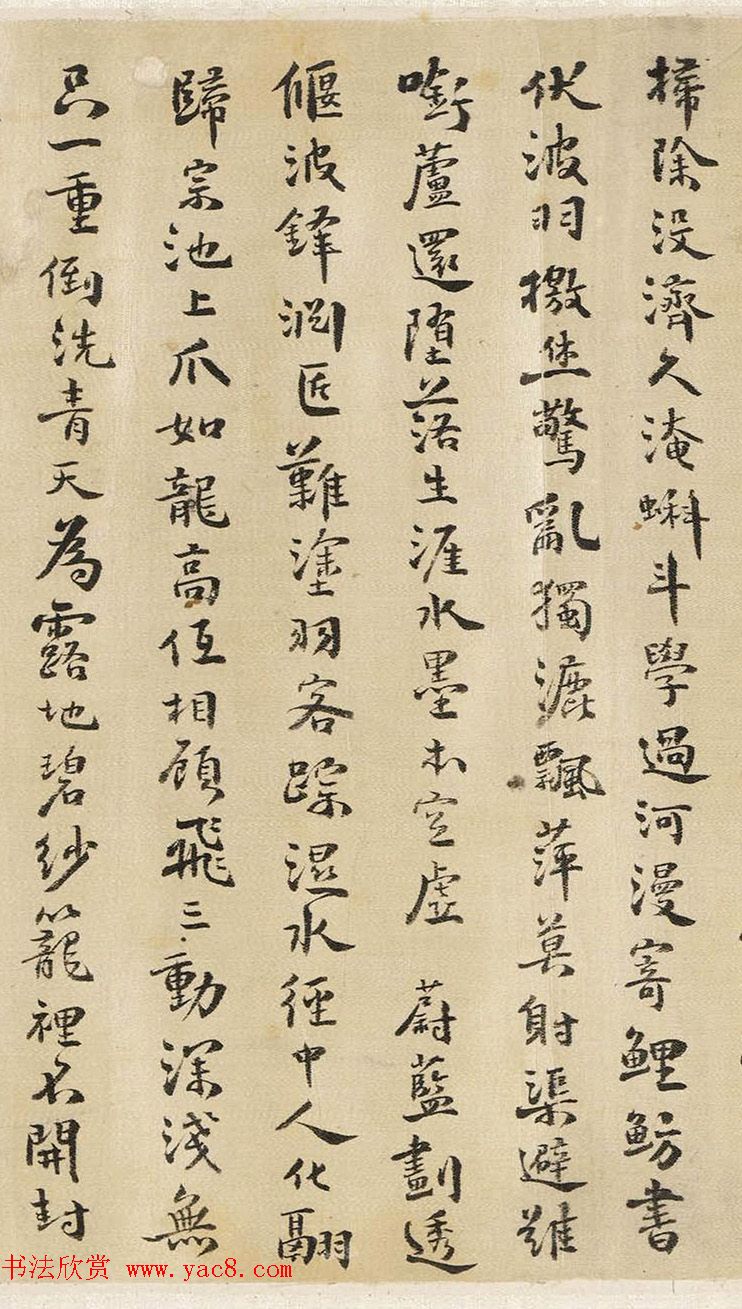 掃除没濟久淹蝌斗學過河漫寄鯉魴書
伏波羽檄驚亂獨漉飄萍莫射渠避難
銜蘆還墮落生涯水墨本空虛 蔚藍劃透
偃波鋒澗匝難塗羽客蹤濕水徑中人化翮
歸宗池上爪如龍高低相顧飛三動深淺無
只一重倒洗青天為露地碧紗籠裡不開封
书法欣赏 www.yac8.com